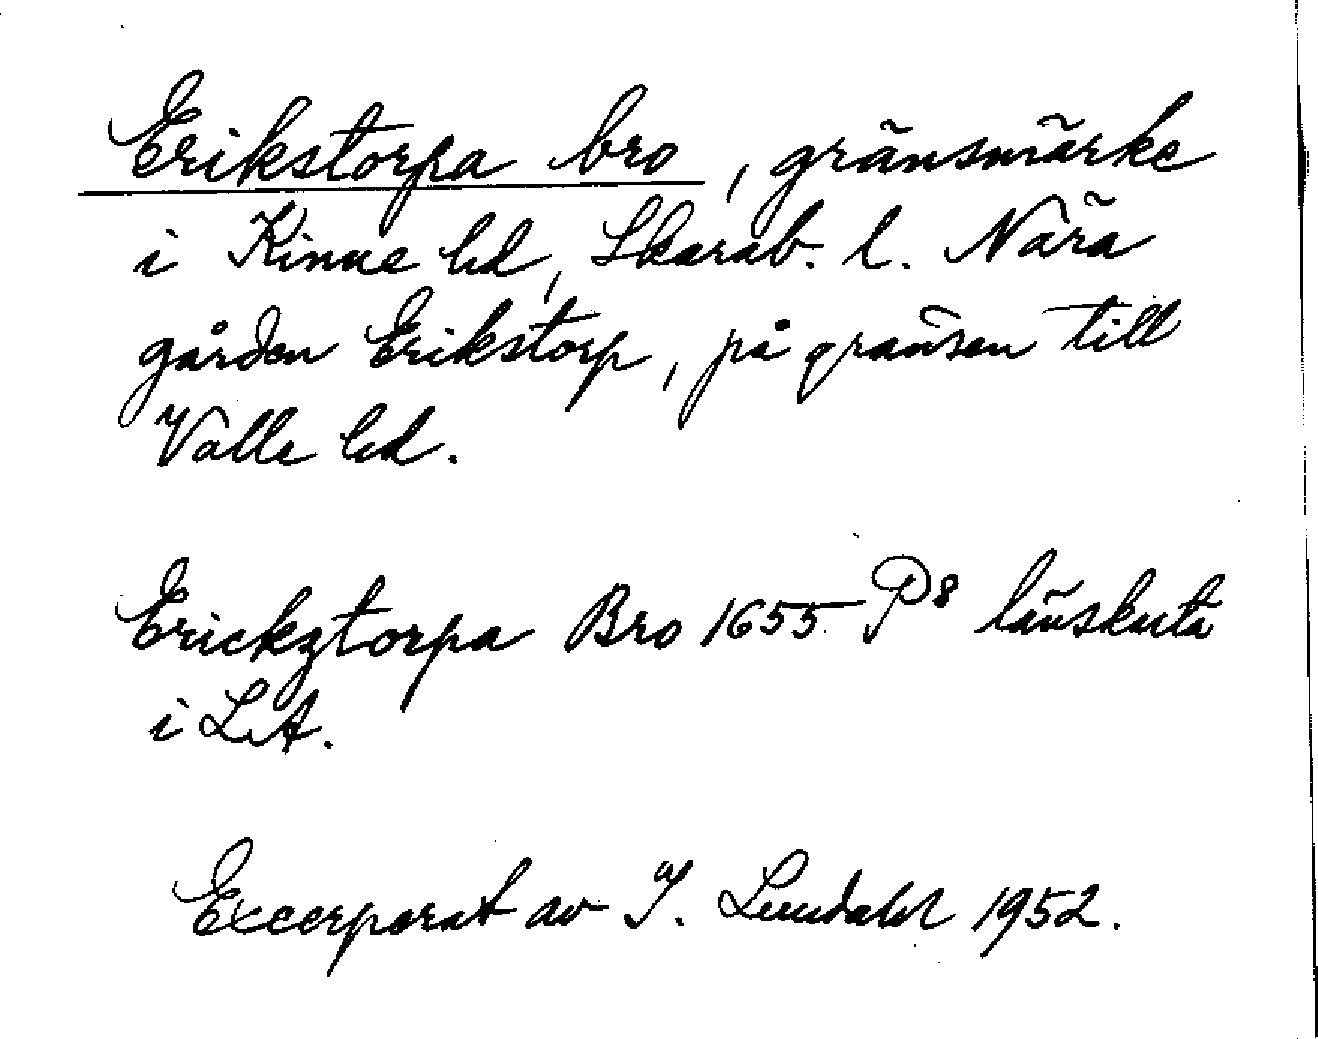 Erikstorpa bro, gränsmärke
i Kinne hd, Skarab. l. Nära
gården Erikstorp, på gränsen till
Valle hd.
Erickztorpa Bro 1655 P8 länskarta
i LA.
Excerperat av I. Lundahl 1952.